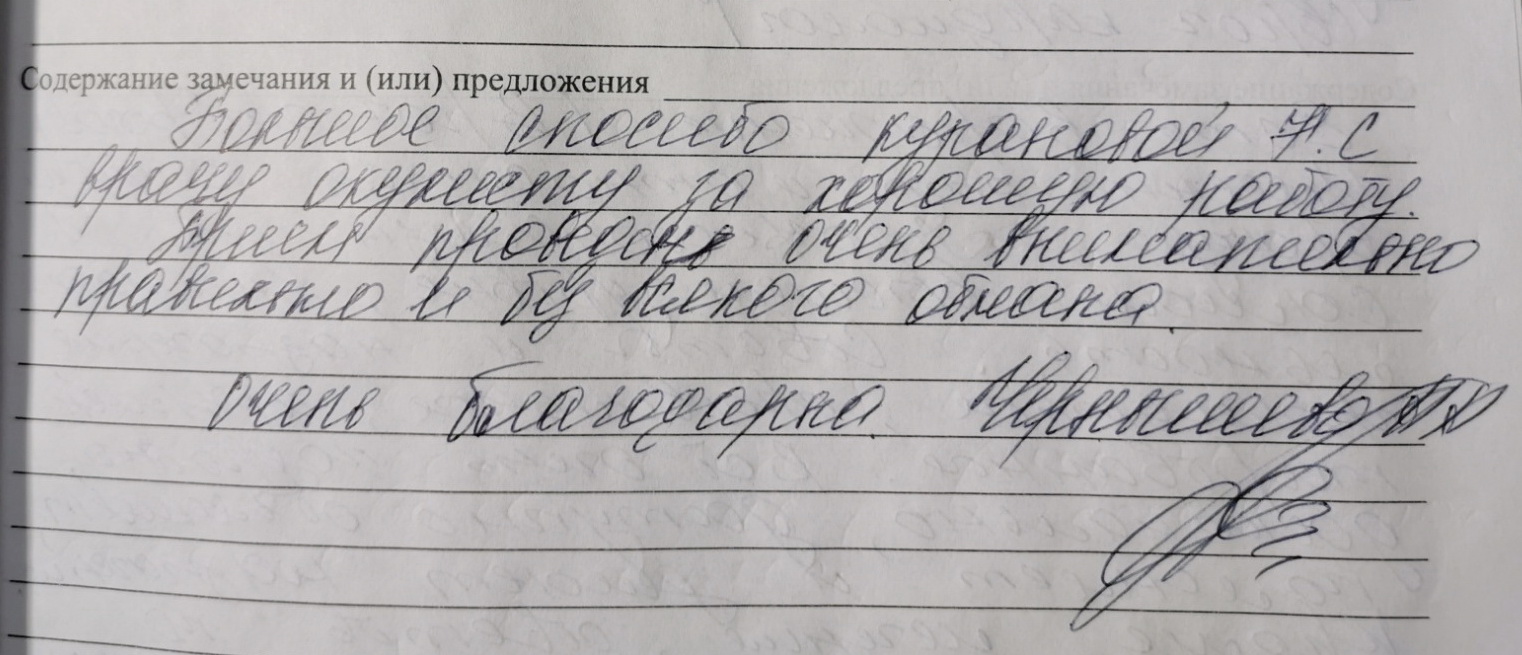 Содержание замечания и (или) предложения
Большое спасибо Курановой Н.С
врачу окулисту за хорошую работу.
Приём проведён очень внимательно
правильно и без всякого обмана.
Очень благодарна Чернышева